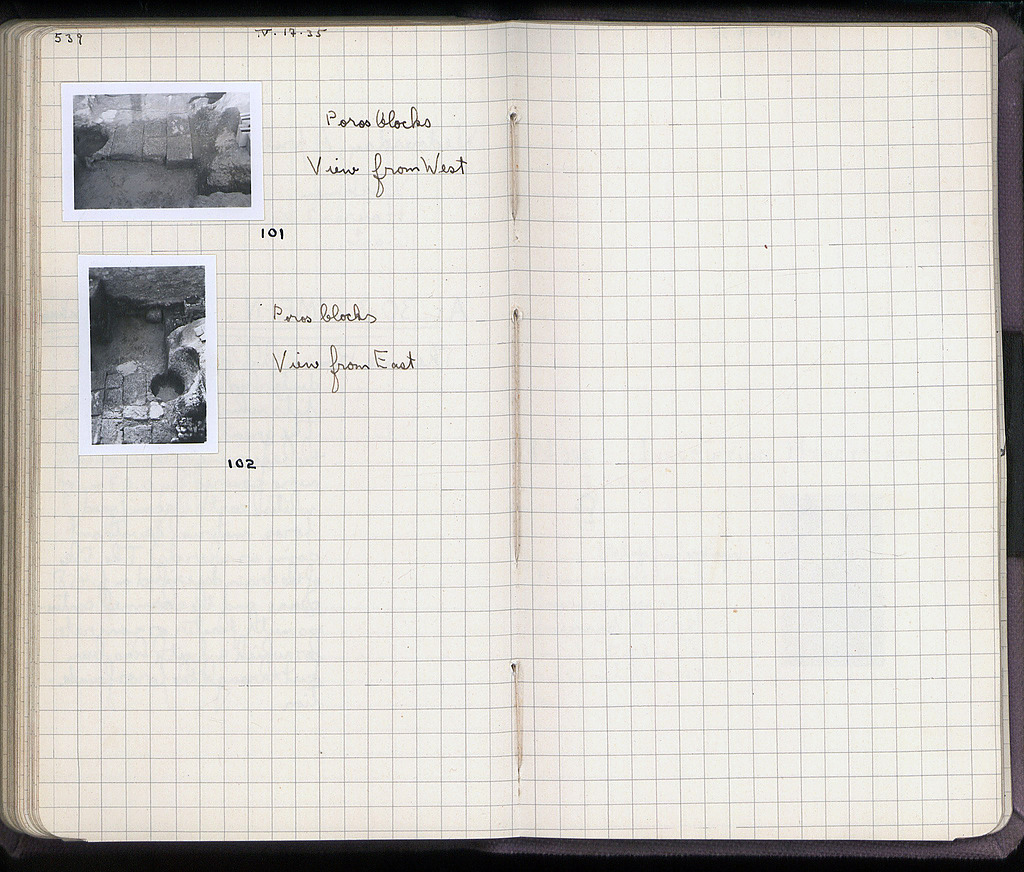 539
V. 17. 35
Poros blocks
View from West
101
Poros blocks
View from East
102